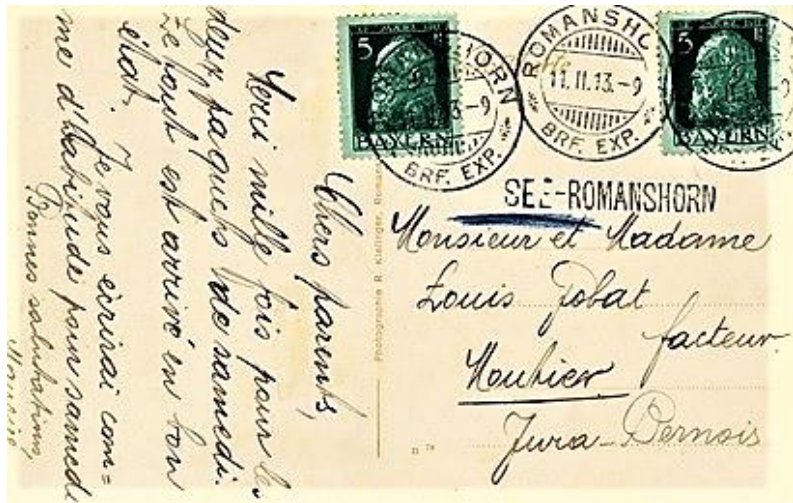 5
BAYERN
ROMANSHORN
11.II.13.-9
BRF. EXP.
5
BAYERN
SEE-ROMANSHORN
Monsieur et Madame
Louis Jobat
facteur
Moutier
Jura-Bernois
Photographie R.
Chers parents,
Merci mille fois pour les
deux paquets de samedi.
Ze tout est arrivé en bon
état.
Je vous écrirai com=
me d'habitude pour samedi
Bonnes salutations,